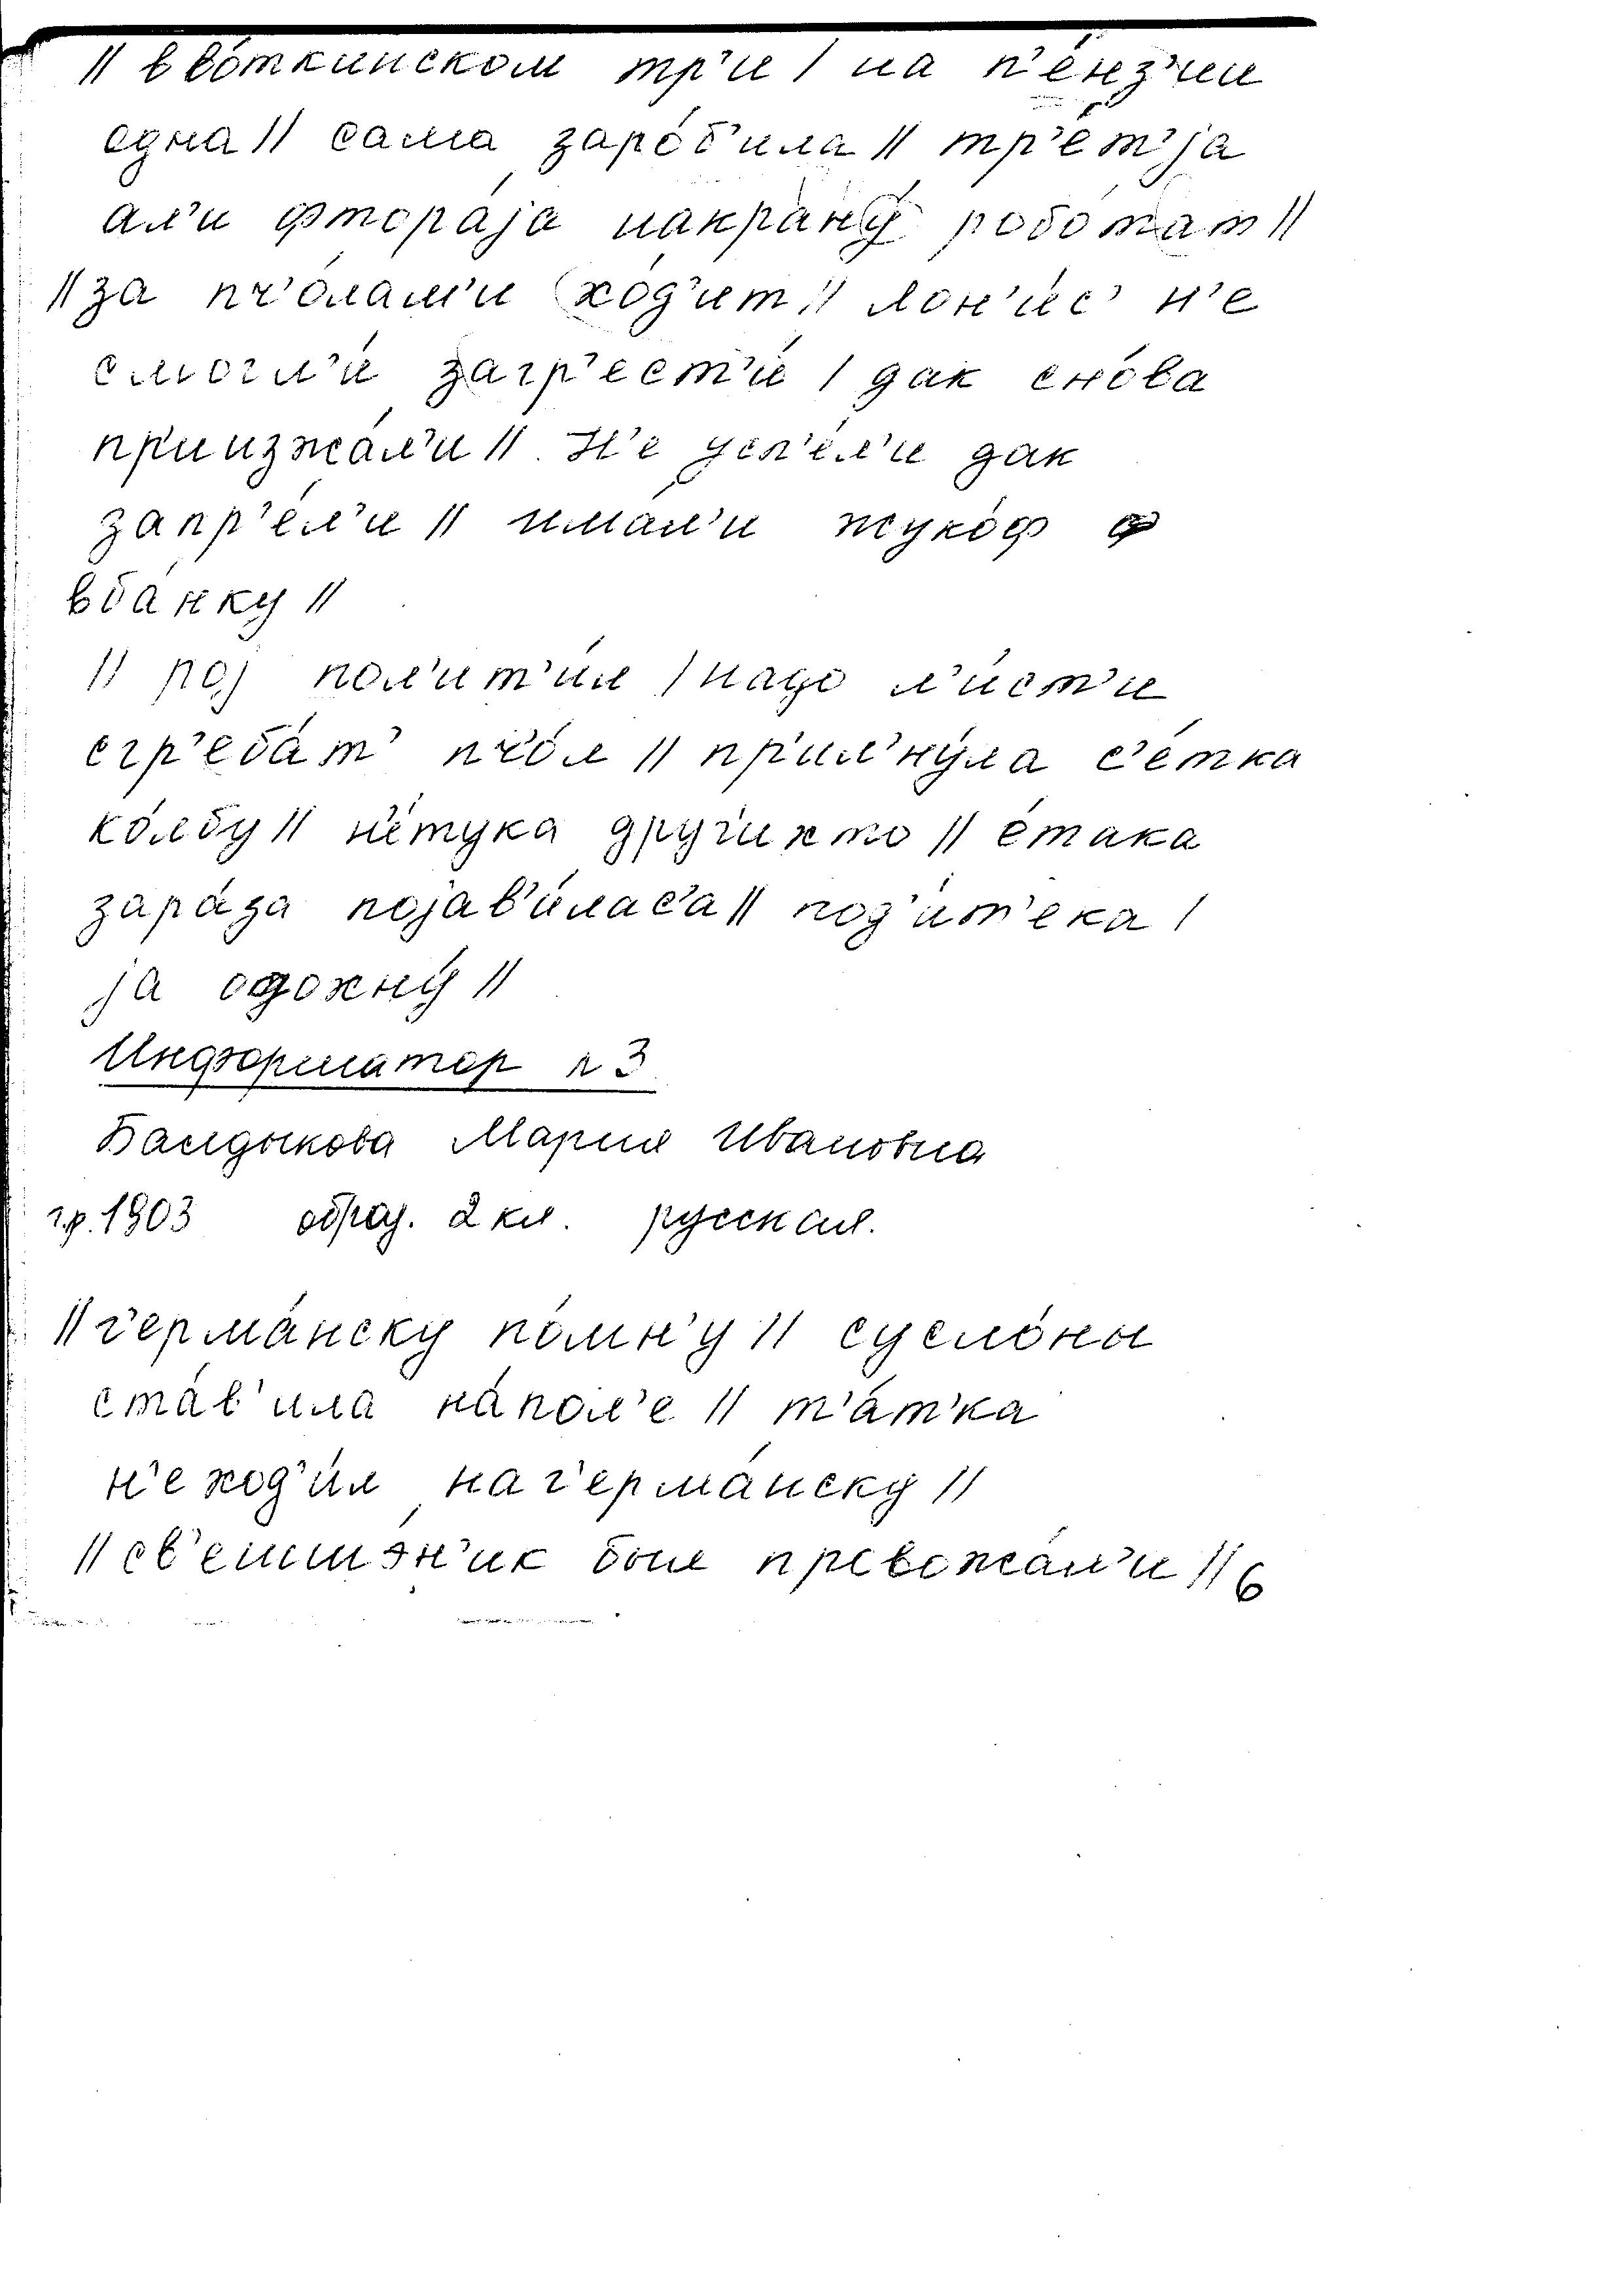 // в во́ткинском тр'и / на п'е́нз'ии
одна // сама заро́б'ила // тр'е́т'jа
ал'и фтора́jа накрану́ робо́тат //
// за пч'о́лам'и хо́д'ит // лон'и́с' н'е
смогл'и́ загр'ест'и́ / дак сно́ва
пр'иизжа́л'и // н'е усп'е́л'и дак
запр'е́л'и // има́л'и жуко́ф
в ба́нку //
// роj пол'ит'и́л / надо л'и́ст'и
сгр'еба́т' пч'о́л // пр'ил'ну́ла с'е́тка
ко́лбу // н'е́тука друг'ихто // е́така
зара́за поjав'и́лас'а // под'и́т'ека /
jа одохну́ //
Информатор № 3
Балдыкова Мария Ивановна
г.р. 1903 образ. 2 кл. русская.
// г'ерма́нску по́мн'у // сусло́ны
ста́в'ила на́пол'е // т'а́т'ка
н'е ход'и́л на г'ерма́нску //
// св'ешшэ́н'ик был провожа́л'и // 6